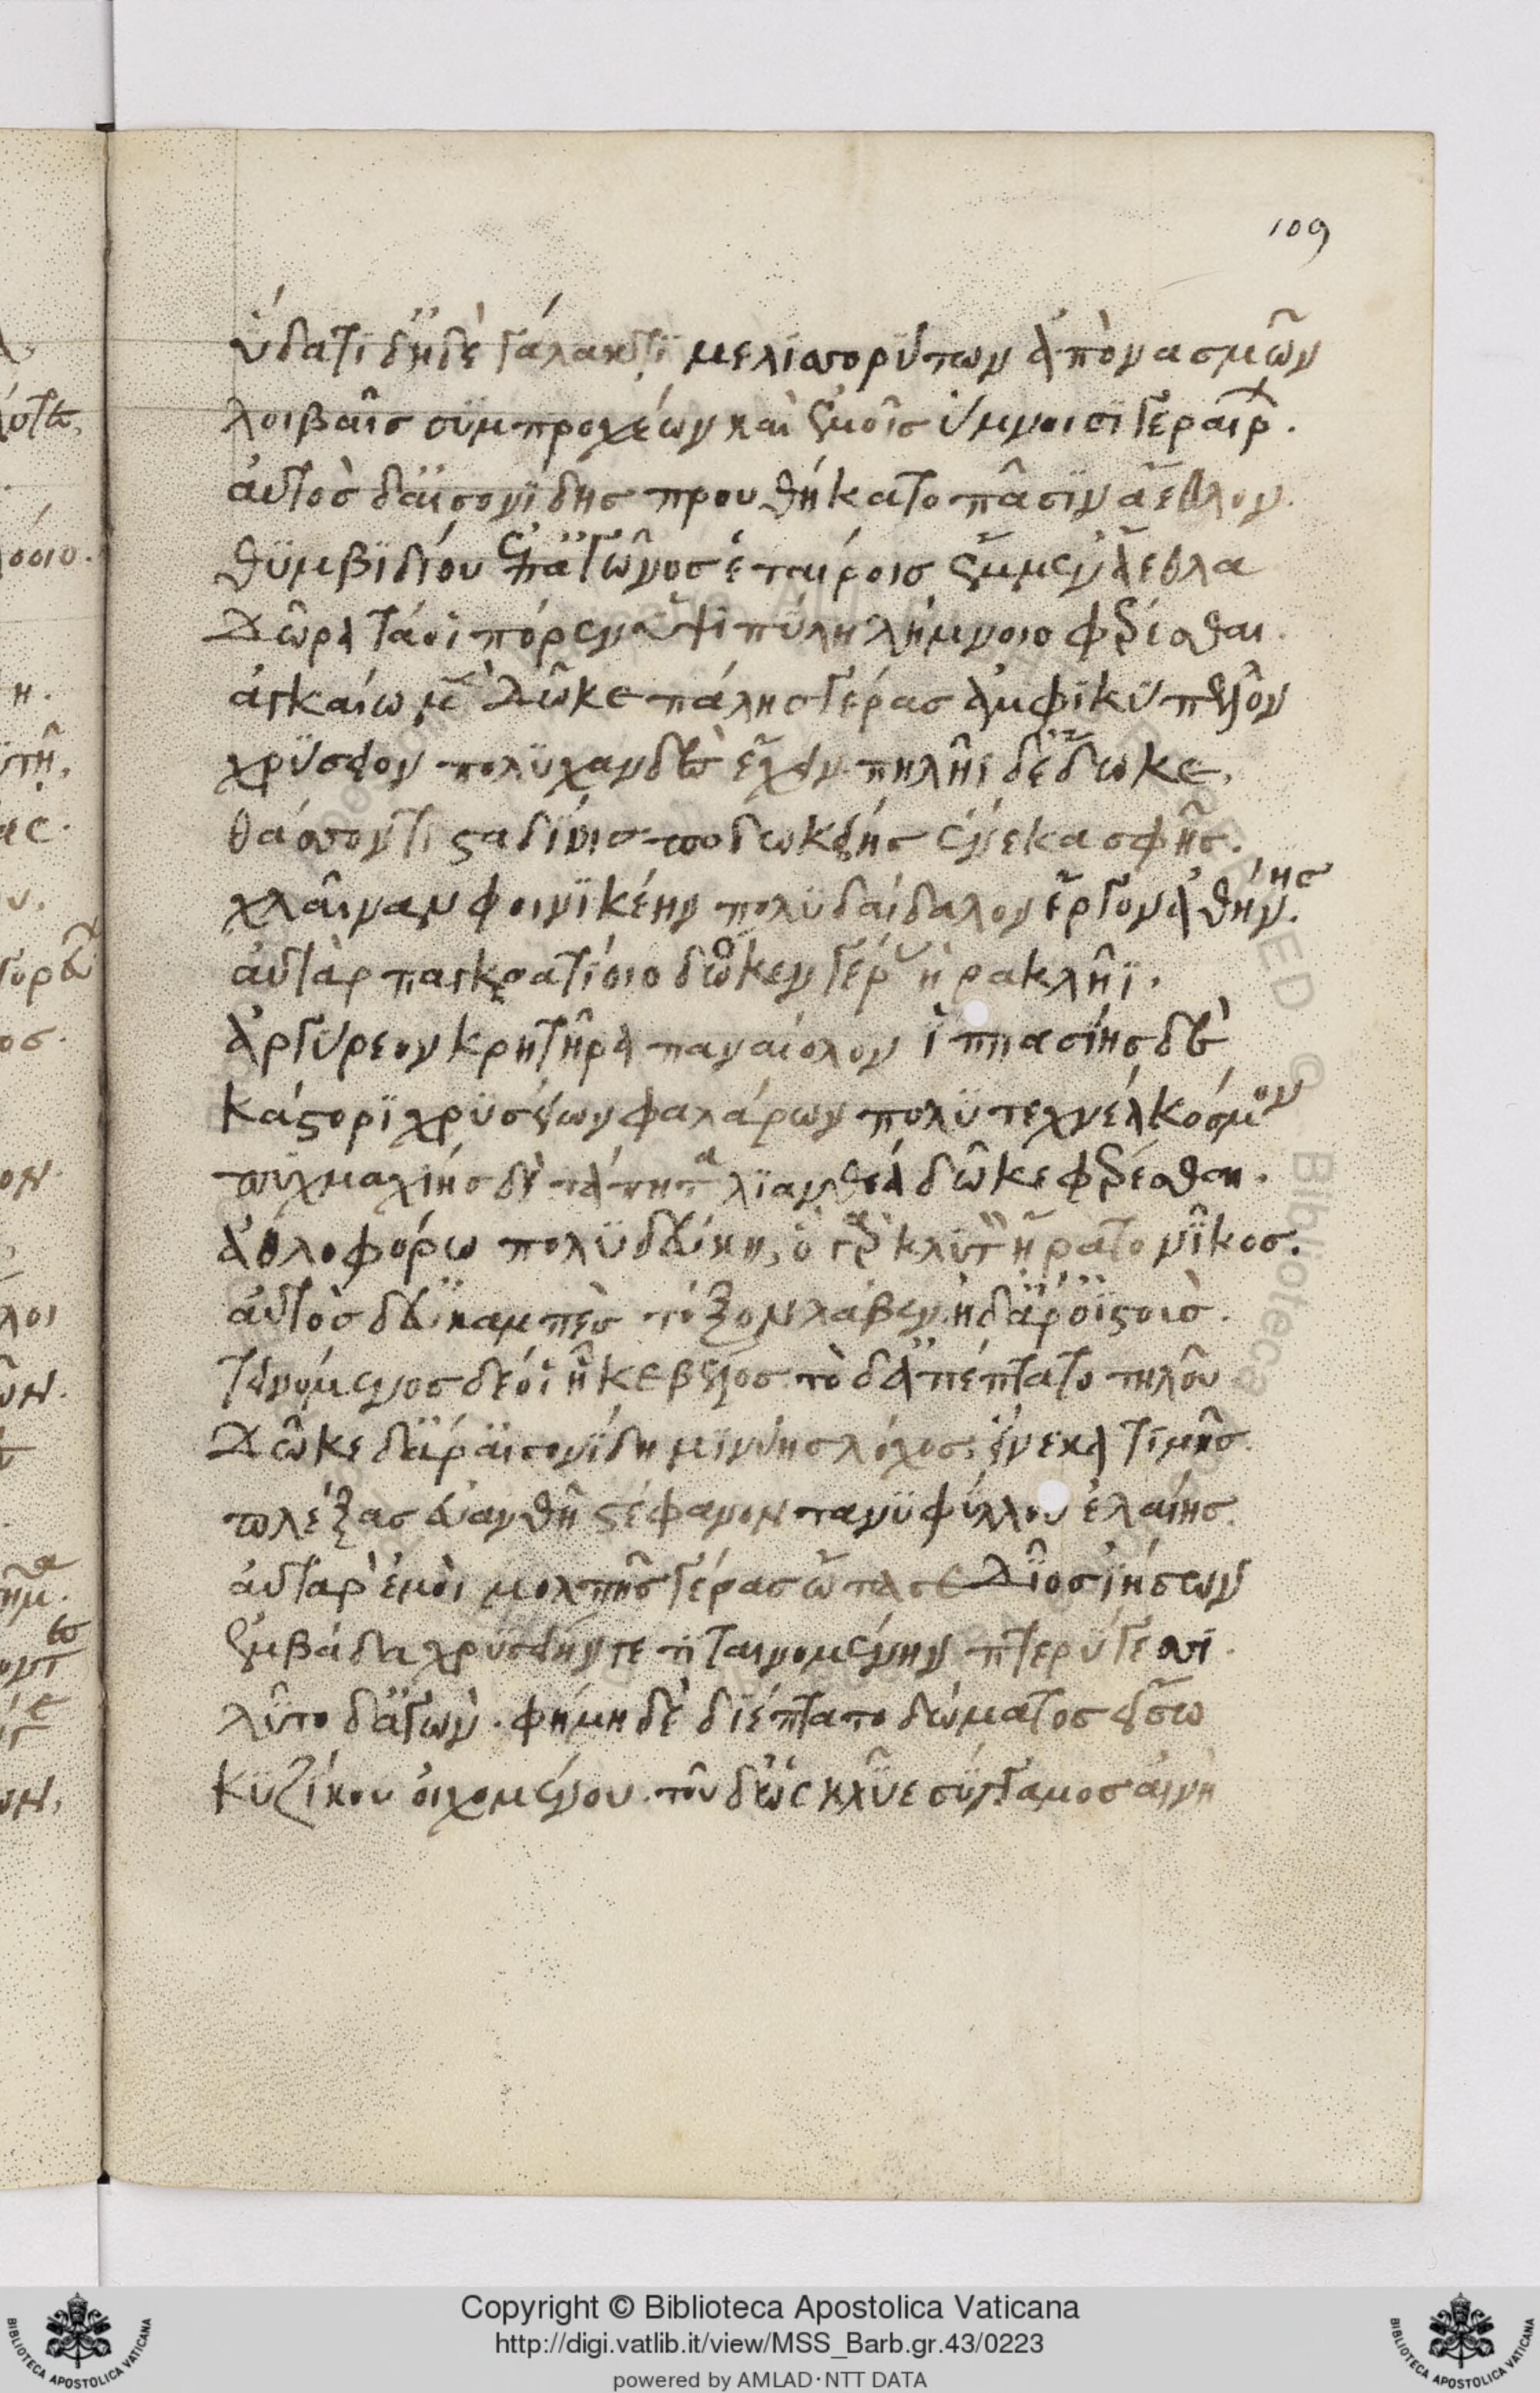 109
ὕδατι δ' ἠδὲ γάλακτι μελισσορύτων ἀπὸ νασμῶν
λοιβαῖς συμπροχέων καὶ ἐμοῖς ὕμνοισι γεραίρων.
αὐτὸς δ' αἰσονίδης προυθήκατο πᾶσιν ἄεθλον
θυμβιδίου ἐπ' ἀγῶνος ἑταίροις ἔμμεν ἄεθλα
δῶρα τά οἱ πόρεν ὑψιπύλη λήμνοιο φέρεσθαι.
ἀγκαίω μὲν δῶκε πάλης γέρας ἀμφικύπελλον
χρύσειον πολυχανδὲς ἔχειν. πηλῆϊ δ' ἔδωκε,
θάσσοντι σταδίοις ποδωκείης ἕνεκα σφῆς.
χλαῖναν φοινικέην πολυδαίδαλον ἔργον ἀθήνης.
αὐτὰρ παγκρατίοιο δῶκεν γέρας ἡρακλῆϊ.
ἀργύρεον κρητῆρα παναίολον ἱππασίης δὲ
κάστορι χρυσείων φαλάρων πολυτεχνέα κόσμον
πυγμαχίης δὲ τάπητα λιανθέα δῶκε φέρεσθαι.
ἀθλοφόρω πολυδεύκῃ, ὁ γὰρ κλυτὸν ἤρατο νῖκος.
αὐτὸς δ' εὐκαμπὲς τόξον λάβεν. ἠδ' ἄρ' ὀϊστούς.
τεινόμενος δέ οἱ ἧκε βέλος. τὸ δ' ἀπέπτατο τηλοῦ
δῶκε δ' ἄρ' αἰσονίδῃ μινύης λόχος, εἵνεκα τιμῆς.
πλέξας εὐανθῆ στέφανον τανυφύλλου ἐλαίης.
αὐτὰρ ἐμοὶ μολπῆς γέρας ὤπασε δῖος ἰήσων
ἐμβάδα χρυσείην γε τιταινομένην πτερύγεσσι.
λῦτο δ' ἀγών. φήμη δὲ διέπτατο δώματος εἴσω
κυζίκου οἰχομένου. τοῦ δ' ὡς κλῦε σύγγαμος αἰνὴ
Copyright © Biblioteca Apostolica Vaticana
http://digi.vatlib.it/view/MSS_Barb.gr.43/0223
powered by AMLAD·NTT DATA